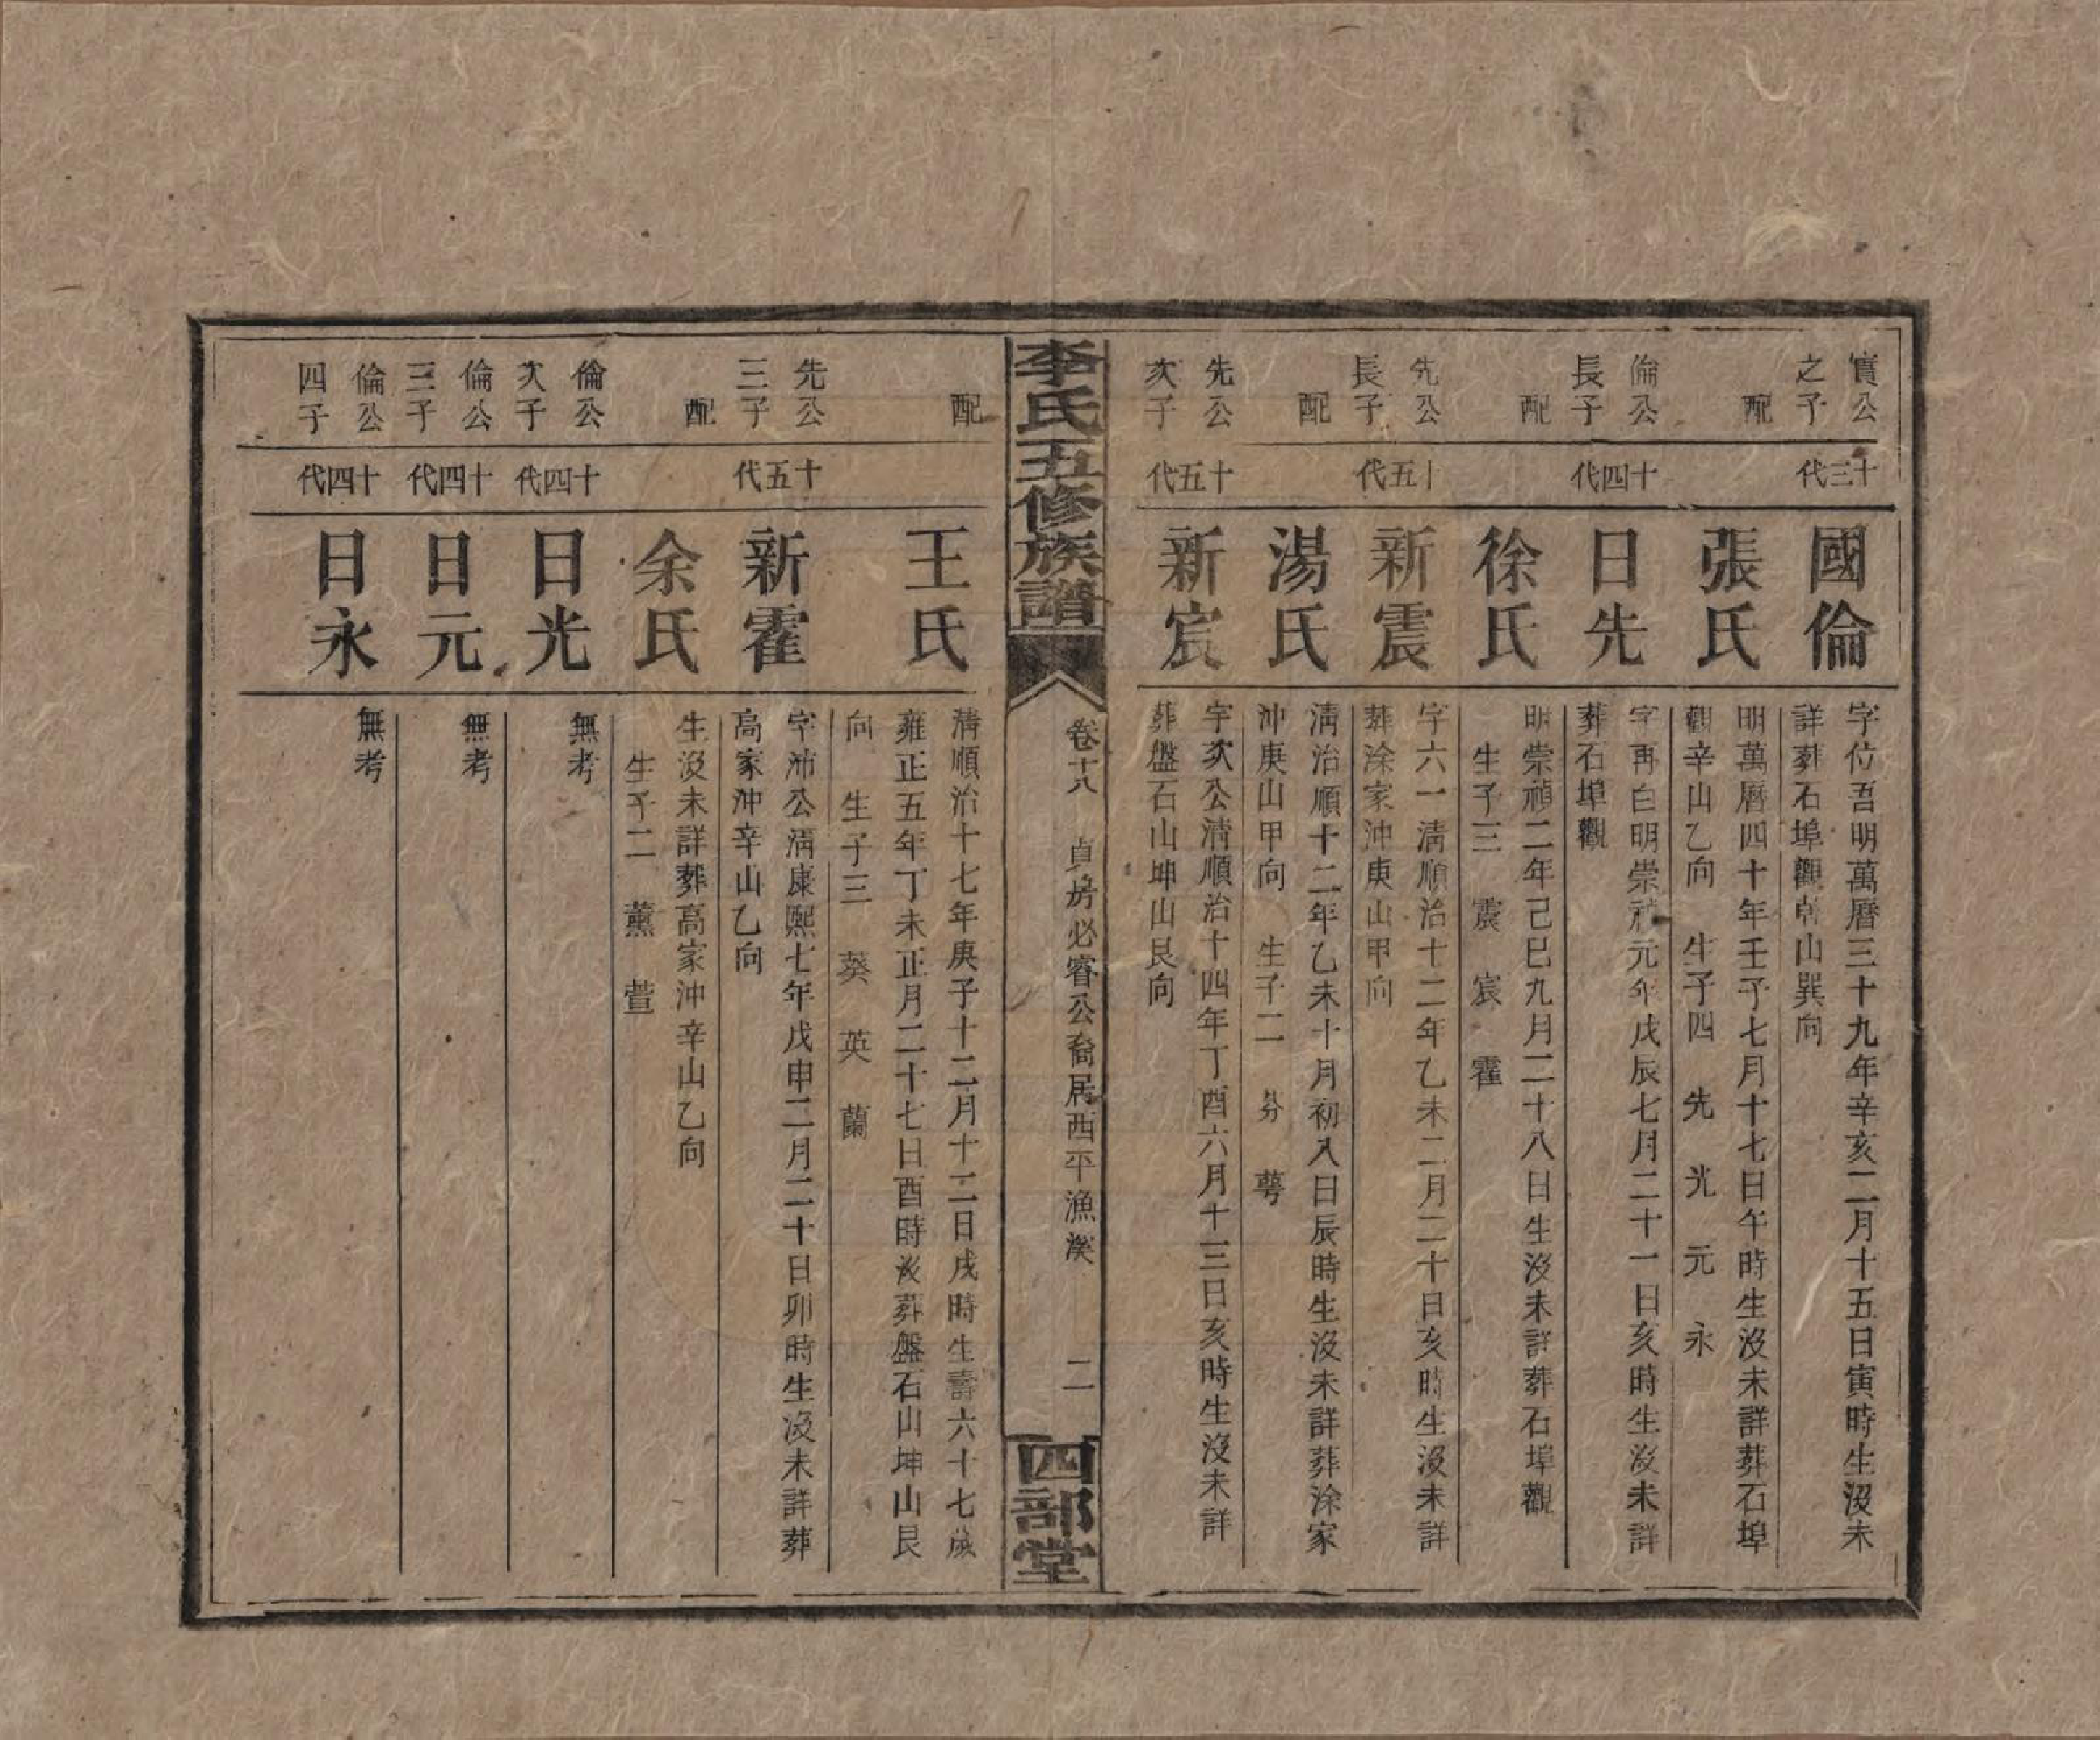 實公
之子
十三代
國倫
字位吾明萬曆三十九年辛亥二月十五日寅時生沒未
詳葬石埠觀乾山巽向
配
張氏
明萬曆四十年壬子七月十七日午時生沒未詳葬石埠
觀辛山乙向 生子四 先 光 元 永
倫公
長子
十四代
日先
字再白明崇禎元年戊辰七月二十一日亥時生沒未詳
葬石埠觀
配
徐氏
明崇禎二年己巳九月二十八日生沒未詳葬石埠觀
生子三 震 宸 霍
先公
長子
十五代
新震
字六一清順治十二年乙未二月二十日亥時生沒未詳
葬涂家沖庚山甲向
配
湯氏
清治順十二年乙未十月初八日辰時生沒未詳葬涂家
沖庚山甲向 生子二 芬 萼
先公
次子
十五代
新宸
字次公清順治十四年丁酉六月十三日亥時生沒未詳
葬盤石山坤山艮向
李氏五修族譜
卷十八 貞房必睿公裔居西平漁溪 二
四部堂
配
王氏
清順治十七年庚子十二月十二日戌時生壽六十七歲
雍正五年丁未正月二十七日酉時沒葬盤石山坤山艮
向 生子三 葵 英 蘭
先公
三子
十五代
新霍
字沛公清康熙七年戊申二月二十日卯時生沒未詳葬
高家沖辛山乙向
配
余氏
生沒未詳葬高家沖辛山乙向
生子二 薰 萱
倫公
次子
十四代
日光
無考
倫公
三子
十四代
日元
無考
倫公
四子
十四代
日永
無考